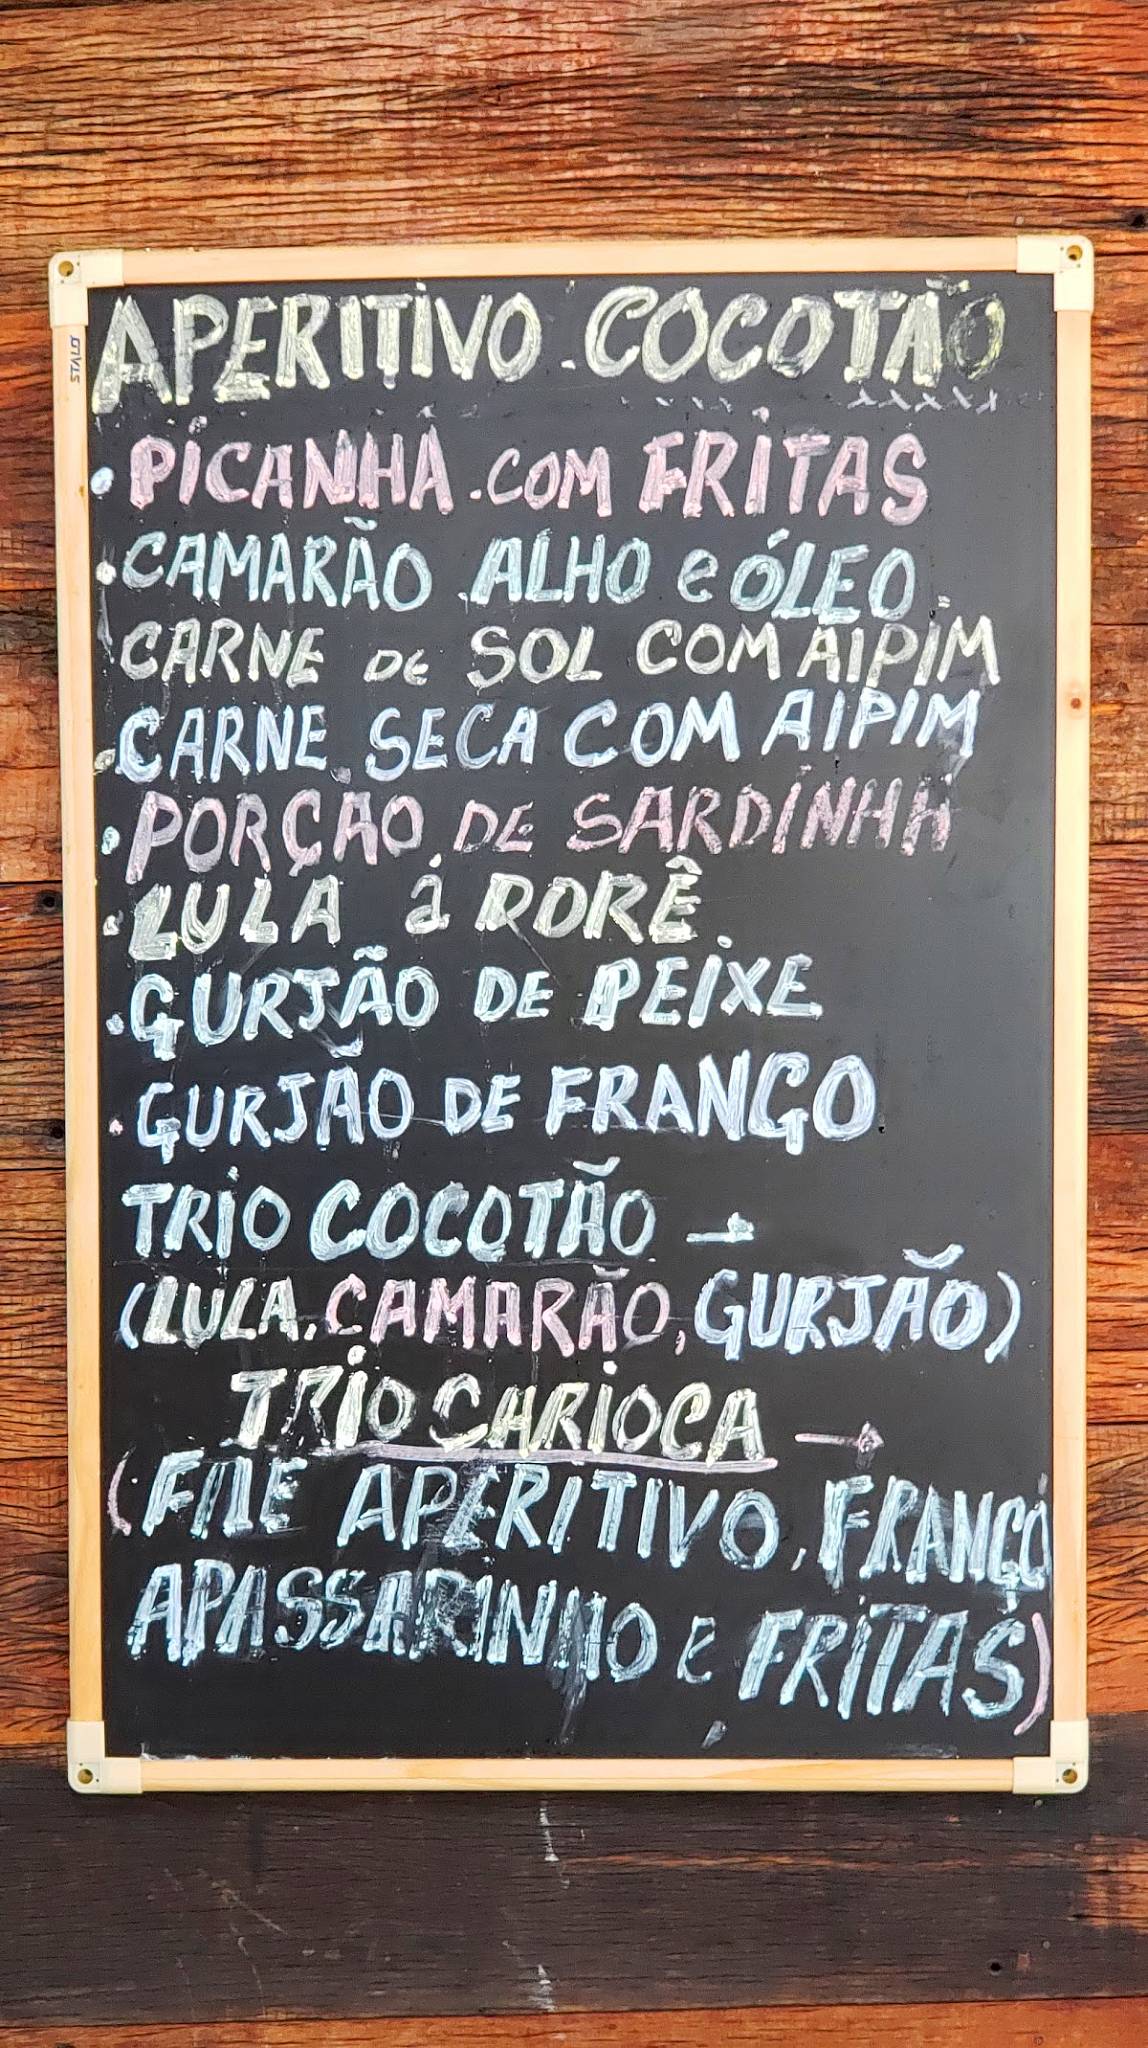 APERITIVO COCOTÃO
PICANHA COM FRITAS
CAMARÃO ALHO e ÓLEO
CARNE DE SOL COM AIPIM
CARNE SECA COM AIPIM
PORÇAO DE SARDINHA
LULA á DORÊ
GURJÃO DE PEIXE
GURJÃO DE FRANGO
TRIO COCOTÃO →
(LULA, CAMARÃO, GURJÃO)
TRIO CARIOCA →
(FILE APERITIVO, FRANGO
APASSARINHO E FRITAS)
STALO